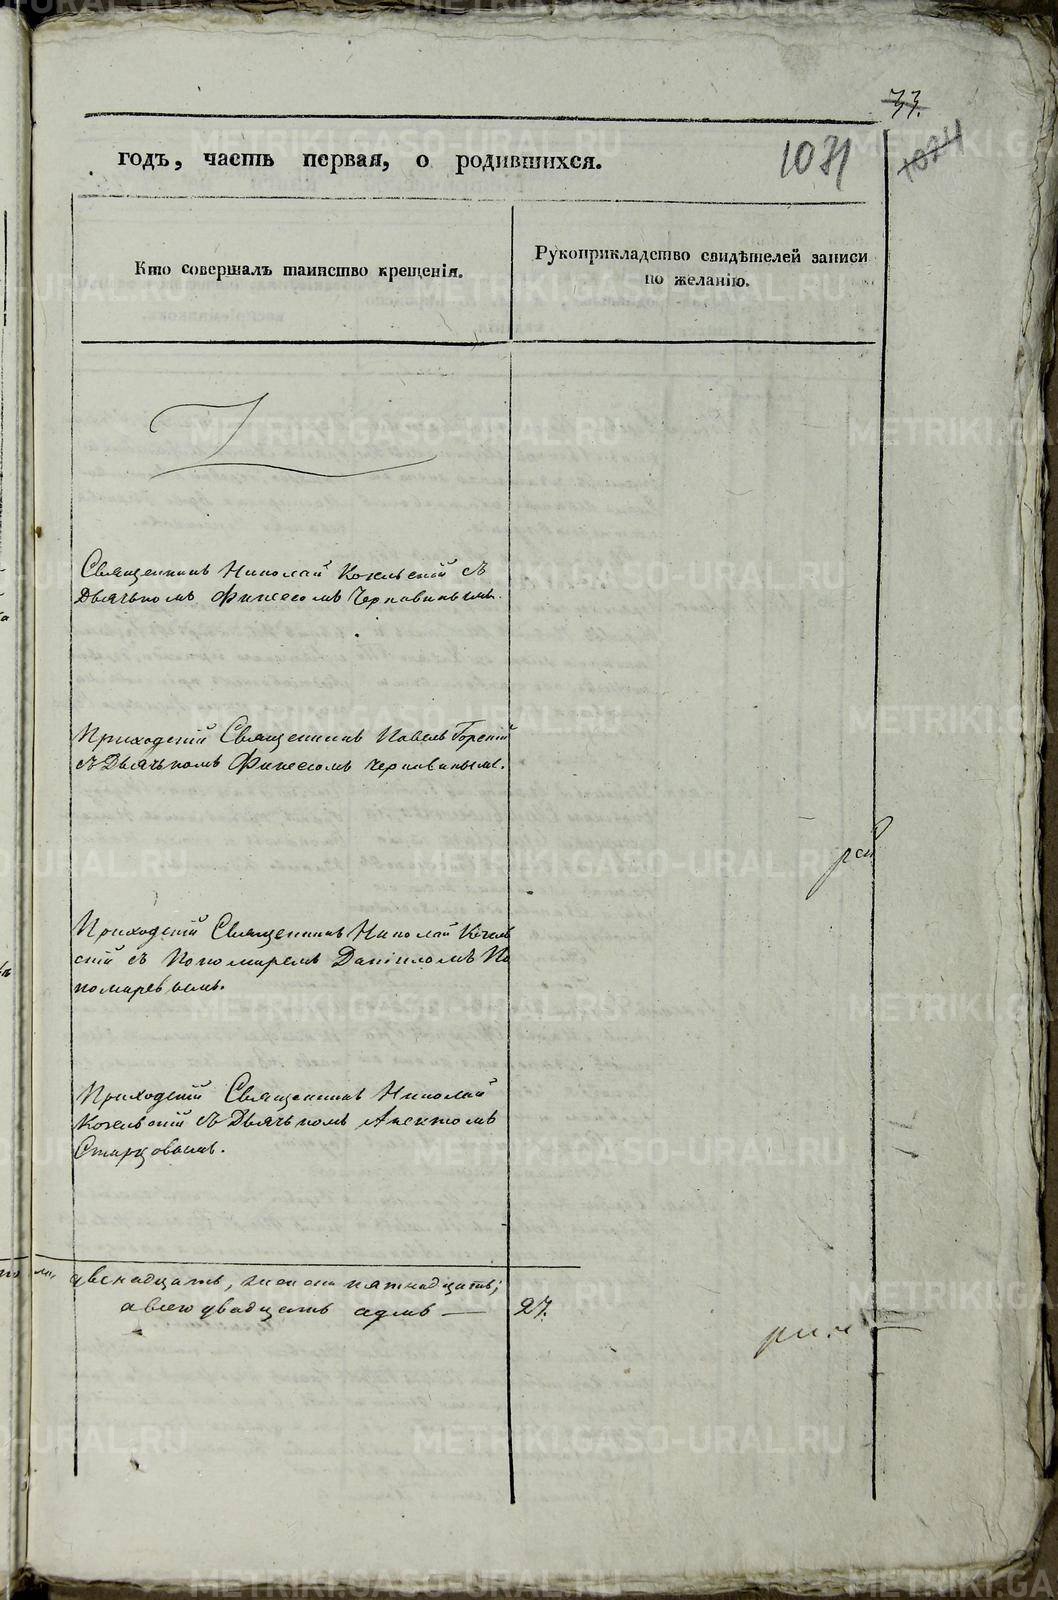 33.
годъ, часть первая, о родившихся.
1031
1024
Кто совершалъ таинство крещенія.
Рукоприкладство свидѣтелей записи
по желанію.
Священникъ Николай Кокльскій съ
Дьячькомъ Финесомъ Черновинымъ.
Приходскій Священникъ Павелъ Горскій
съ Дьячькомъ Финесомъ Черновинымъ.
Приходскій Священникъ Николай
скій съ Пономаремъ Даніиломъ По
номаревымъ.
Приходскій Священникъ Николай
съ Дьячькомъ
Старцовымъ.
двенадцать, пятнадцать;
а всего двадцать 27.
METRIKI.GASO-URAL.RU